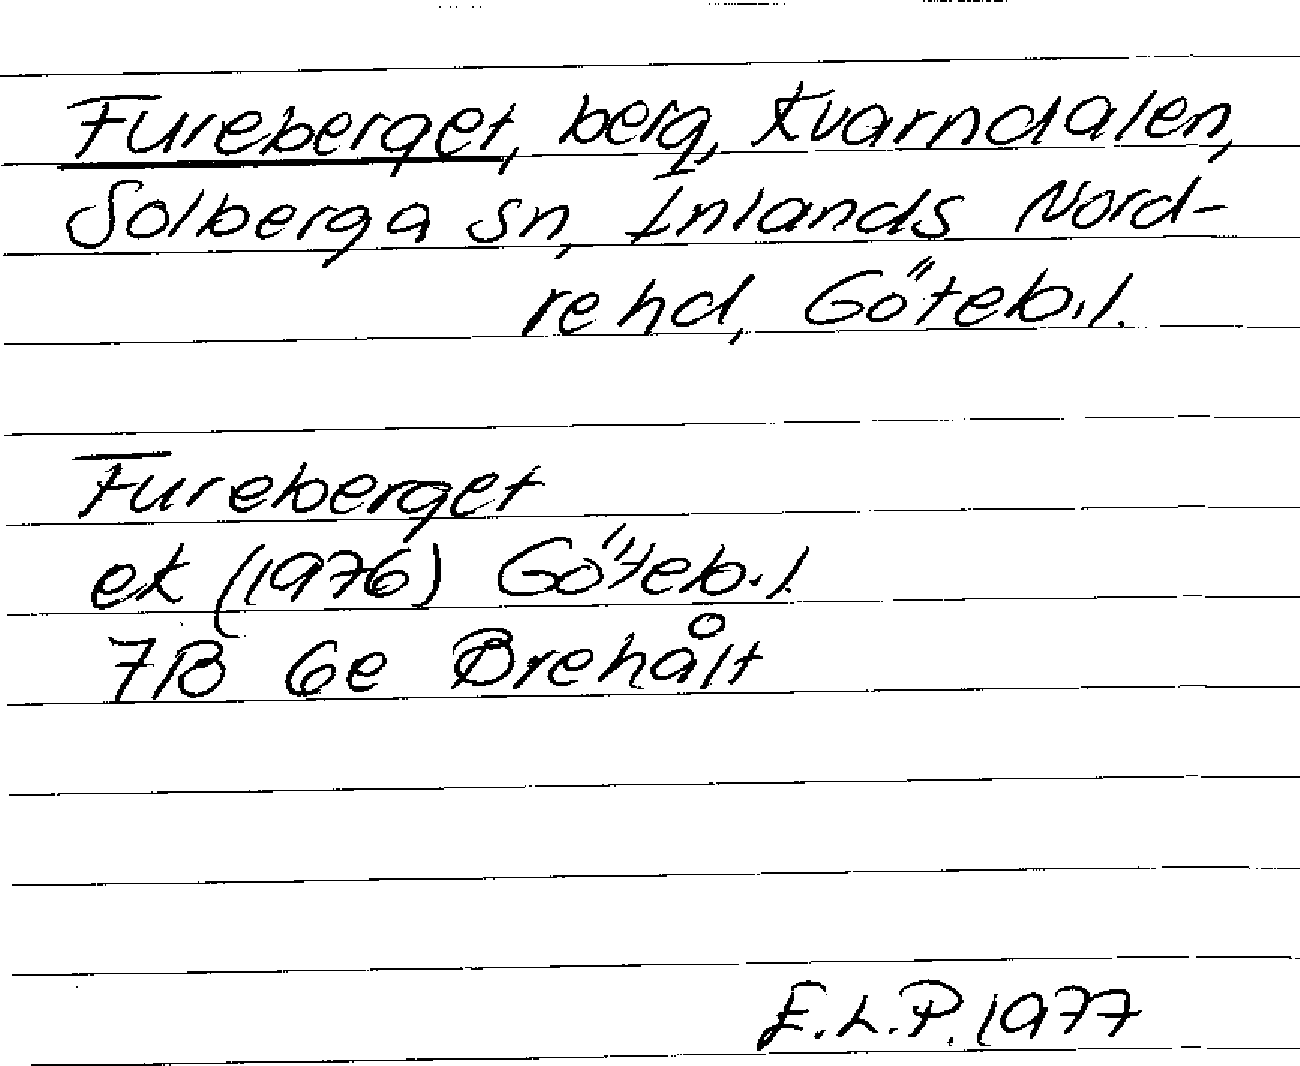 Fureberget, berg, Kvarndalen,
Solberga sn, Inlands Nord-
re hd, Göteb.l.
Fureberget
ek (1976) Göteb.l.
7B 6e Brehålt
E.L.P. 1977